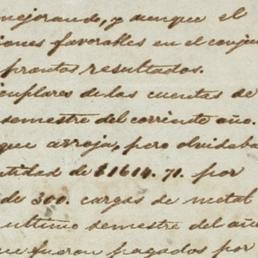 mejorando, y aunque el
iones favorables en el conjun
prontos resultados.
emplares de las cuentas de
semestre del corriente año.
que arroja, pero olvidaba
ntidad de $1614.71. por
de 300. cargas de metal
ultimo semestre del año
ue fueron pagados por